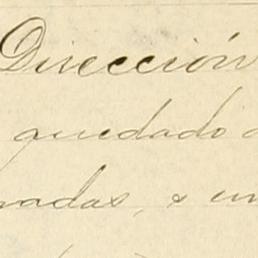 Dirección
quedado a
nadas, & un